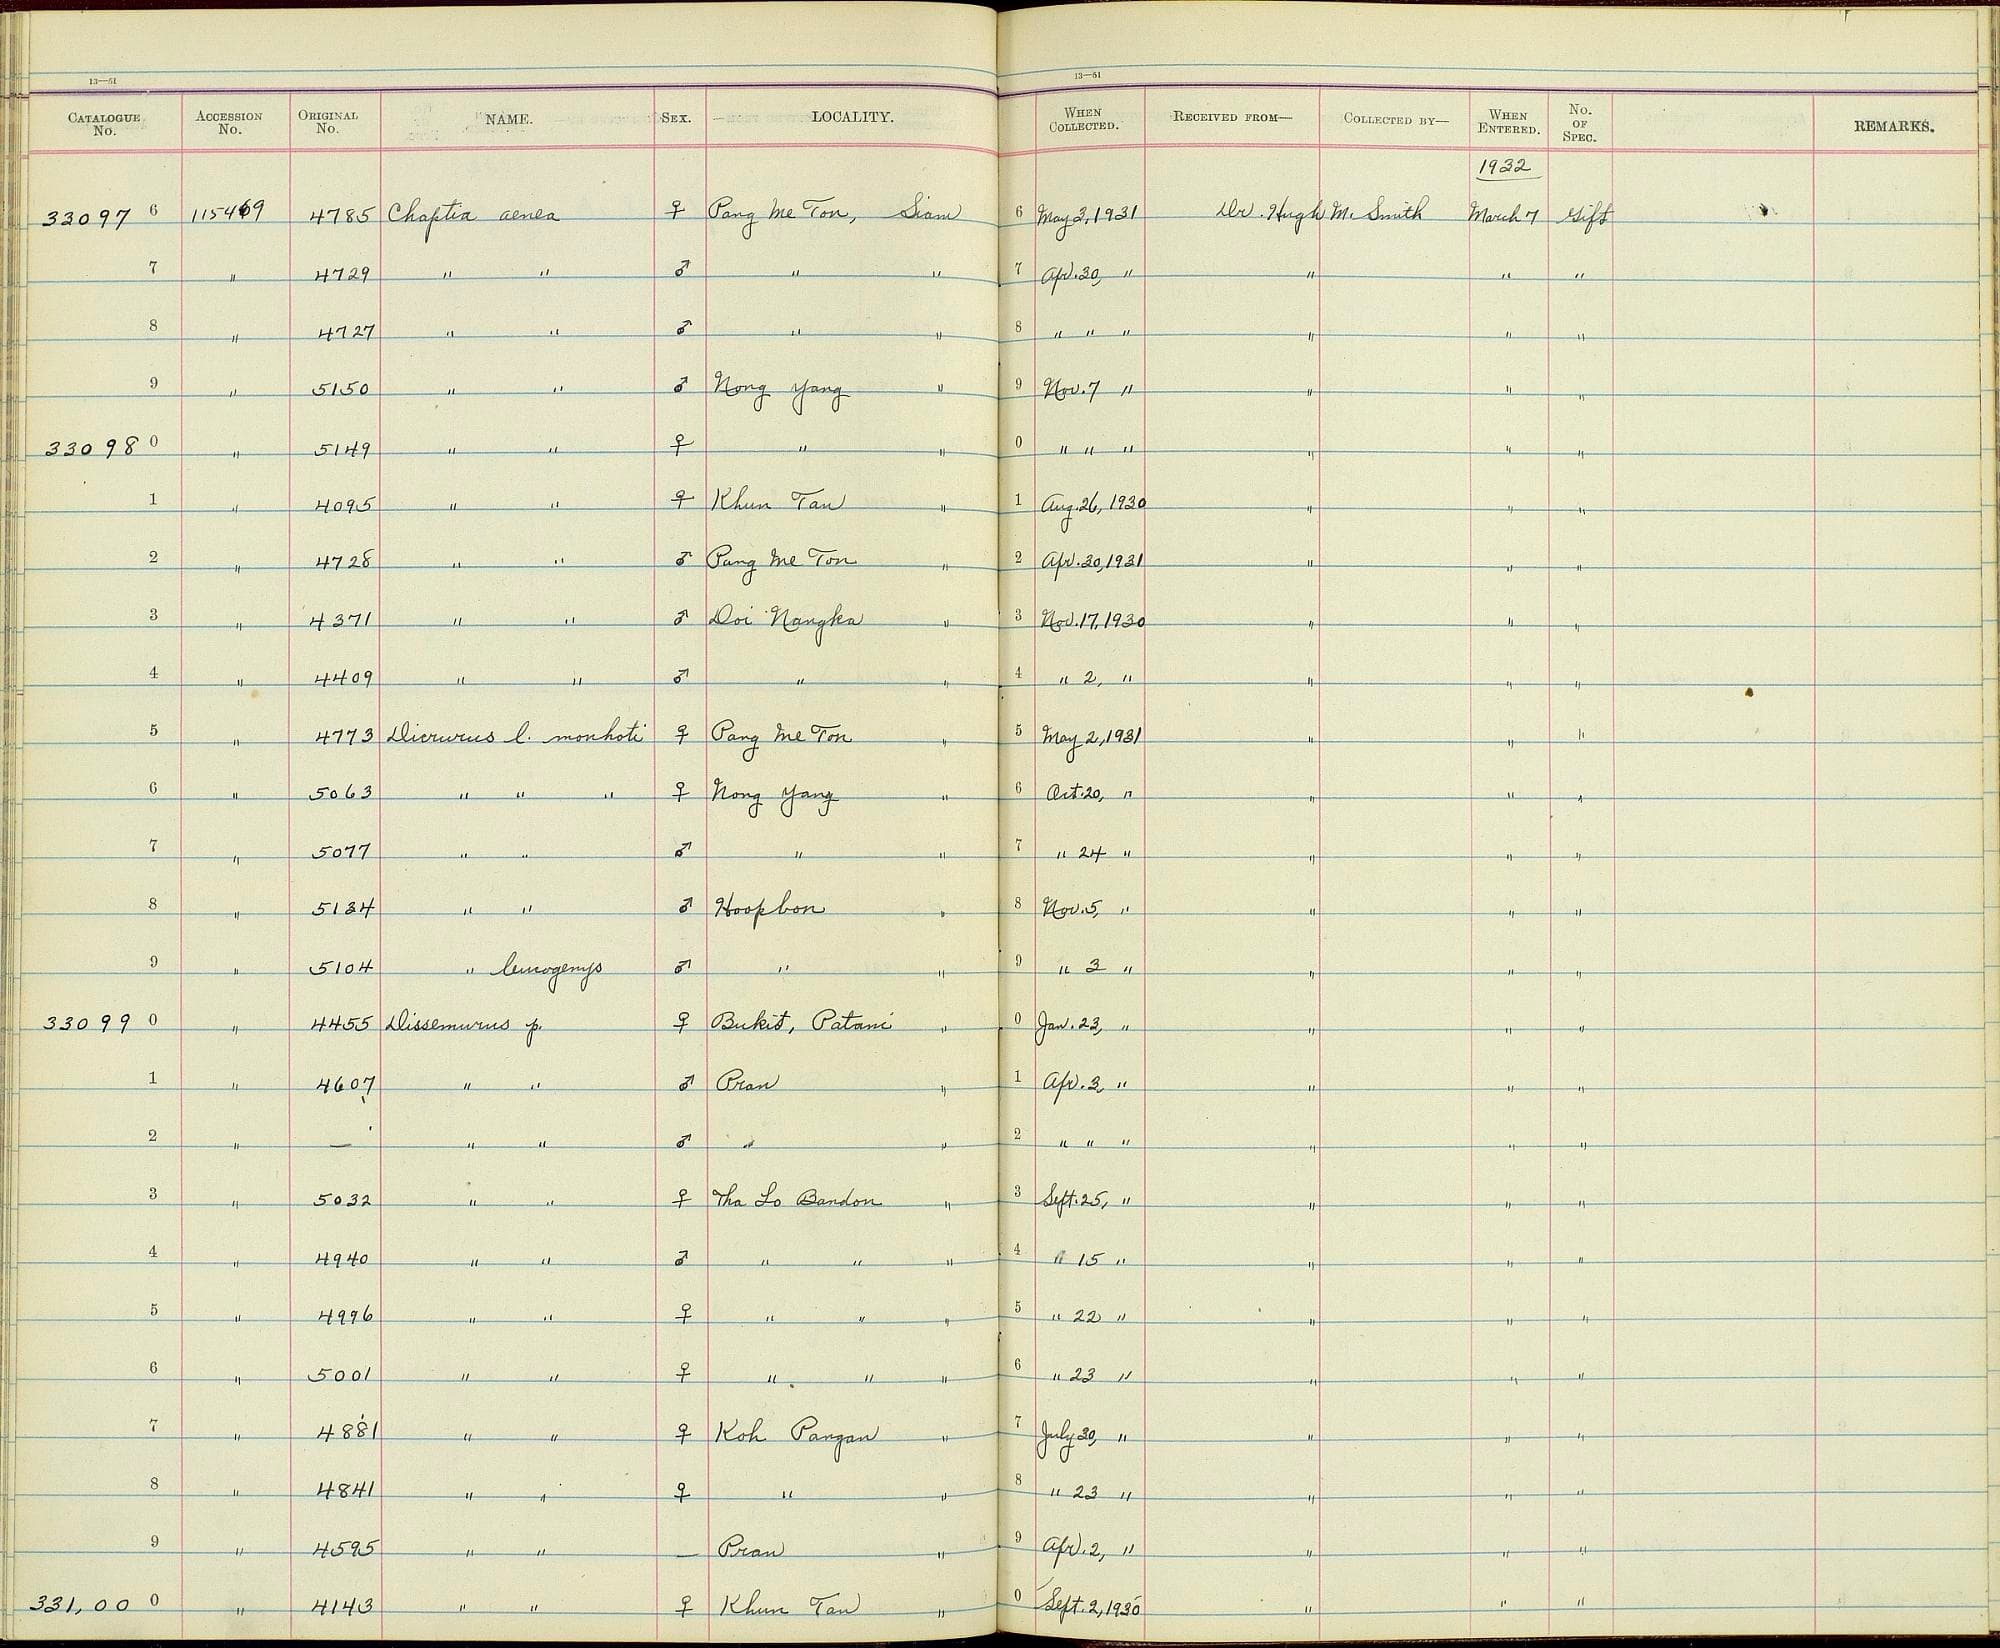 13—51 13—51
CATALOGUE No. ACCESSION No. ORIGINAL No. NAME. SEX. LOCALITY. WHEN COLLECTED. RECEIVED FROM— COLLECTED BY— WHEN ENTERED. No. OF SPEC. REMARKS.
1932
33097 6 115469 4785 Chaptia aenea ♀ Pang Me Ton, Siam 6 May 3, 1931 Dr. Hugh M. Smith March 7 Gift
7 " 4729 " " ♂ " " 7 Apr. 30, " " " "
8 " 4727 " " ♂ " " 8 " " " " " "
9 " 5150 " " ♂ Nong Yang " 9 Nov. 7 " " " "
33098 0 " 5149 " " ♀ " " 0 " " " " " "
1 " 4095 " " ♀ Khun Tan " 1 Aug. 26, 1930 " " "
2 " 4728 " " ♂ Pang Me Ton " 2 Apr. 30, 1931 " " "
3 " 4371 " " ♂ Doi Nangka " 3 Nov. 17, 1930 " " "
4 " 4409 " " ♂ " " 4 " 2, " " " "
5 " 4773 Dicrurus l. monhoti ♀ Pang Me Ton " 5 May 2, 1931 " " "
6 " 5063 " " " ♀ Nong Yang " 6 Oct. 20, " " " "
7 " 5077 " " ♂ " " 7 " 24 " " " "
8 " 5134 " " ♂ Hoopbon " 8 Nov. 5, " " " "
9 " 5104 " leucogenys ♂ " " 9 " 3 " " " "
33099 0 " 4455 Dissemurus p. ♀ Bukit, Patani " 0 Jan. 23, " " " "
1 " 4607 " " ♂ Pran " 1 Apr. 3, " " " "
2 " — " " ♂ " " 2 " " " " " "
3 " 5032 " " ♀ Tha Lo Bandon " 3 Sept. 25, " " " "
4 " 4940 " " ♂ " " " 4 " 15 " " " "
5 " 4996 " " ♀ " " " 5 " 22 " " " "
6 " 5001 " " ♀ " " " 6 " 23 " " " "
7 " 4881 " " ♀ Koh Pangan " 7 July 30, " " " "
8 " 4841 " " ♀ " " 8 " 23 " " " "
9 " 4595 " " — Pran " 9 Apr. 2, " " " "
331,00 0 " 4143 " " ♀ Khun Tan " 0 Sept. 2, 1930 " " "